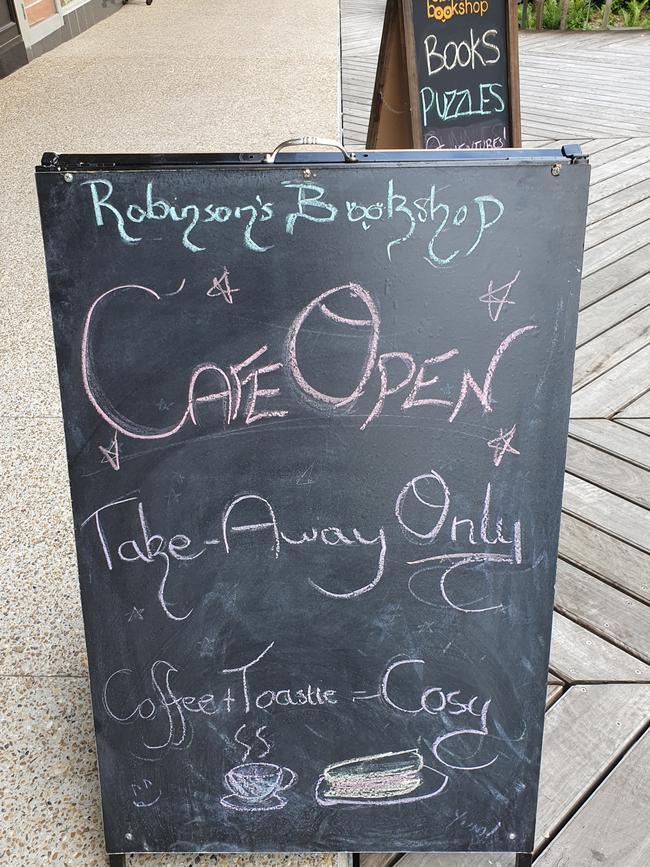 bookshop
BOOKS
PUZZLES
Robinson's Bookshop
CAFE OPEN
Take-Away Only
Coffee + Toastie = Cosy